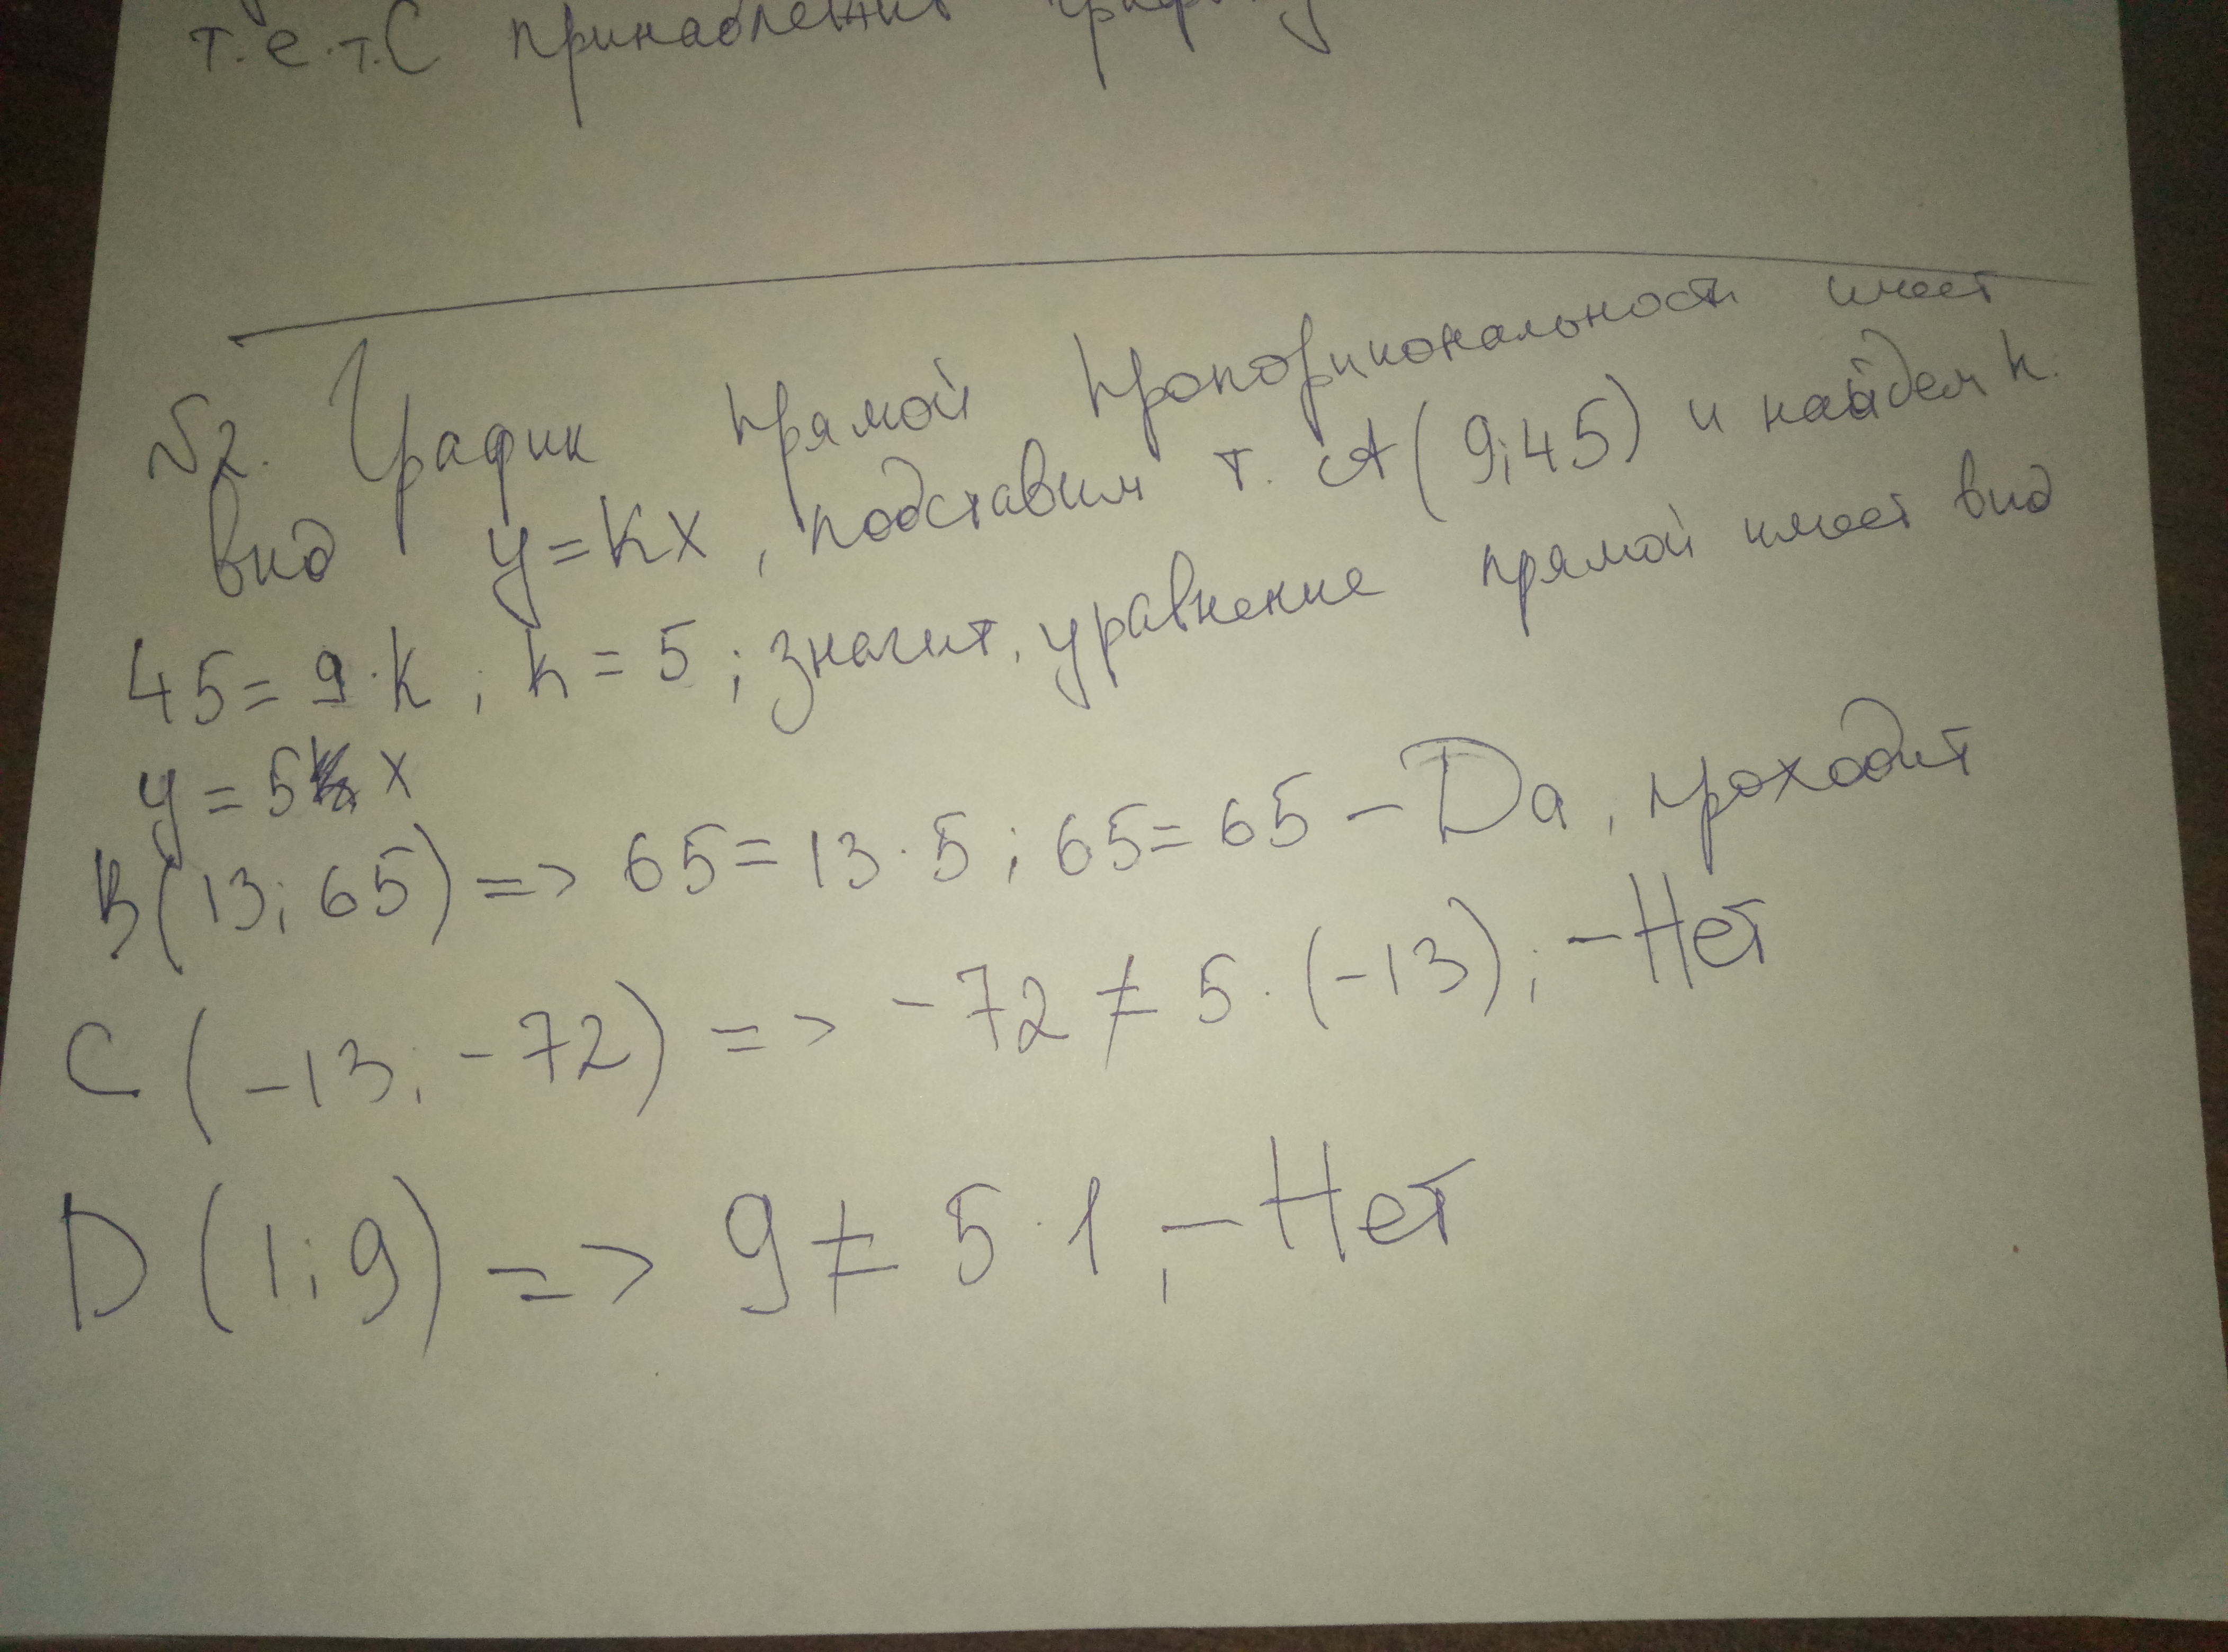 т.е. т.С принадлежит графику
№2. График прямой пропорциональности имеет
вид y=kx, подставим т. A(9;45) и найдем k.
45=9·k; k=5; значит, уравнение прямой имеет вид
y=5x
B(13;65) => 65=13·5; 65=65 – Да, проходит
C(-13;-72) => -72≠5·(-13); – Нет
D(1;9) => 9≠5·1; – Нет